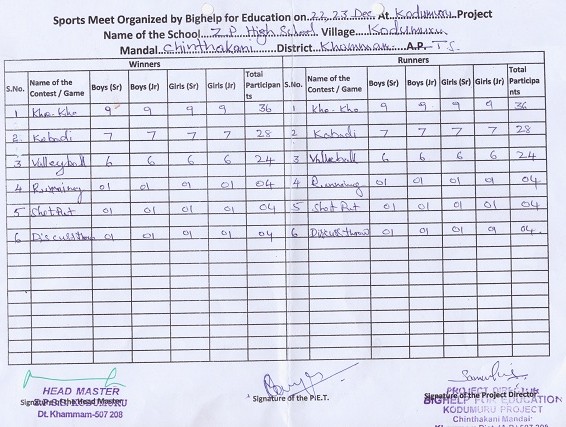 Sports Meet Organized by Bighelp for Education on 22, 23 Dec At Kodumuru Project
Name of the School Z.P. High School Village Kodumuru
Mandal Chinthakani District Khammam A.P. T.S.
Winners Runners
S.No. Name of the Contest / Game Boys (Sr) Boys (Jr) Girls (Sr) Girls (Jr) Total Participan ts S.No. Name of the Contest / Game Boys (Sr) Boys (Jr) Girls (Sr) Girls (Jr) Total Participa nts
1 Kho-Kho 9 9 9 9 36 1 Kho-Kho 9 9 9 9 36
2 Kabadi 7 7 7 7 28 2 Kabadi 7 7 7 7 28
3 Valleyball 6 6 6 6 24 3 6 6 6 6 24
4 Running 01 01 01 01 04 4 Running 01 01 01 04
5 Shot Put 01 01 01 01 04 5 Shot Put 01 01 01 01 04
6 01 01 01 01 04 6 Discussthrow 01 01 01 04
HEAD MASTER
Signature of the Head Master
Dt. Khammam-507 208
Signature of the P.E.T.
Signature of the Project Director
PROJECT DIRECTOR
BIGHELP FOR EDUCATION
KODUMURU PROJECT
Chinthakani Mandal